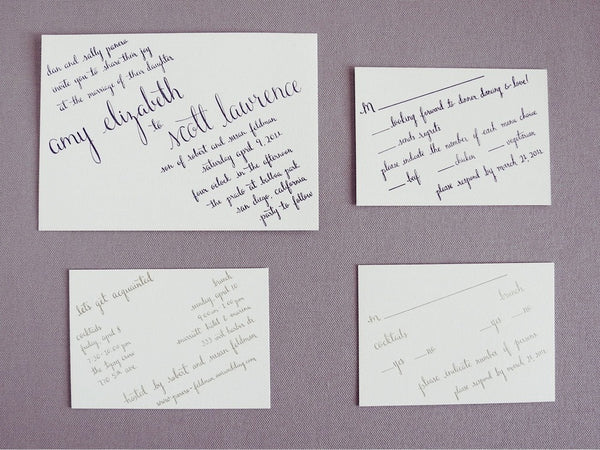 dan and sally panera
invite you to share their joy
at the marriage of their daughter
amy elizabeth
to
scott lawrence
son of robert and susan feldman
saturday april 9, 2011
four oclock in the afternoon
the prado at balboa park
san diego, california
party to follow
M
looking forward to dinner dancing & love!
sends regrets
please indicate the number of each menu choice
beef chicken vegetarian
please respond by march 21, 2011
lets get acquainted
cocktails
friday, april 8
7:30-10:00 pm
the tipsy crow
770 5th ave.
brunch
sunday april 10
9:00am-1:00pm
marriott hotel & marina
333 west harbor dr.
hosted by robert and susan feldman
M
cocktails
yes no
brunch
yes no
please indicate number of persons
please respond by march 21, 2011